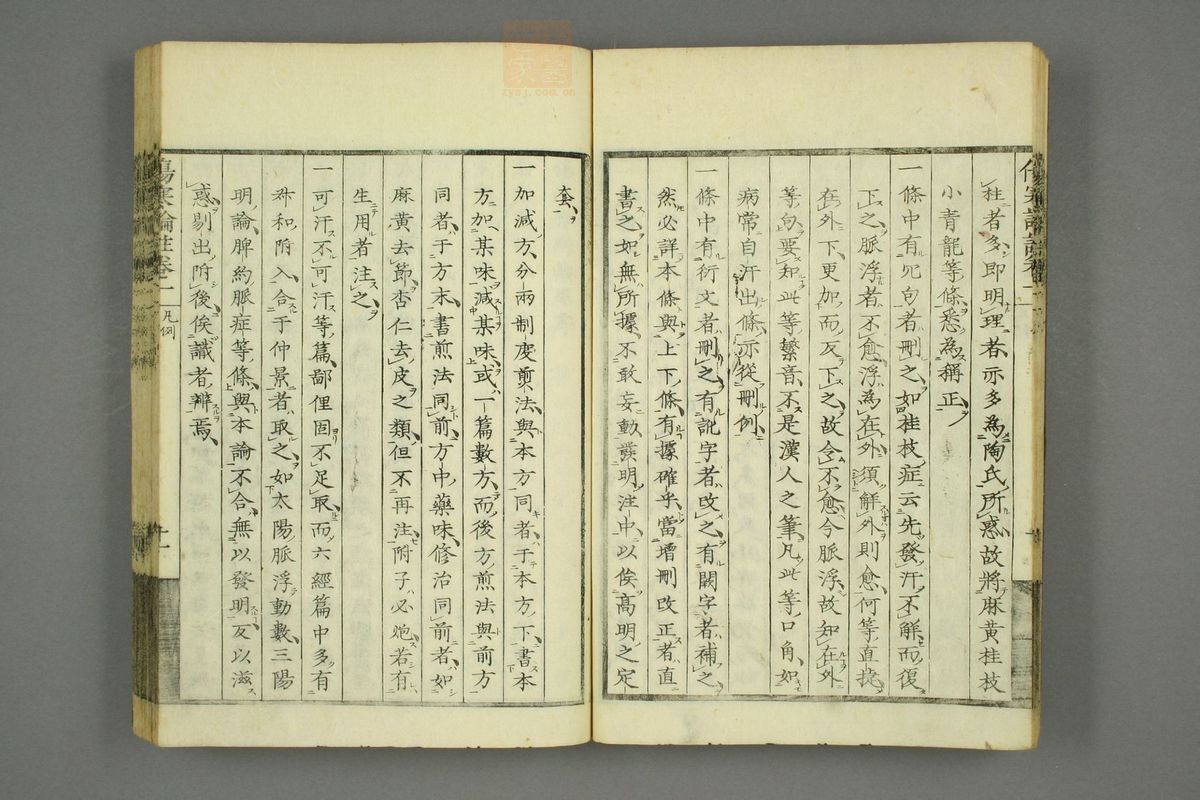 桂者多即明理者亦多為陶氏所惑故將麻黃桂枝
小青龍等條悉為稱正
一條中有冗句者刪之如桂枝症云先發汗不解而復
下之脈浮者不愈浮為在外須解外則愈何等直捷
在外下更加而反下之故令不愈今脈浮故知在外
等句要知此等繁音不是漢人之筆凡此等口角如
病常自汗出條亦從刪例
一條中有衍文者刪之有訛字者改之有闕字者補之
然必詳本條與上下條有據確乎當增刪改正者直
書之如無所據不敢妄動發明注中以俟高明之定
奪
一加減方分兩制度煎法與本方同者于本方下書本
方加某味減某味或一篇數方而後方煎法與前方
同者于方末書煎法同前方中藥味修治同前者如
麻黃去節杏仁去皮之類但不再注附子必炮若有
生用者注之
一可汗不可汗等篇鄙俚固不足取而六經篇中多有
叔和附入合于仲景者取之如太陽脈浮動數三陽
明論脾約脈症等條與本論不合無以發明反以滋
惑剔出附後俟識者辨焉
傷寒論註卷一 凡例 十一
zysj.com.cn